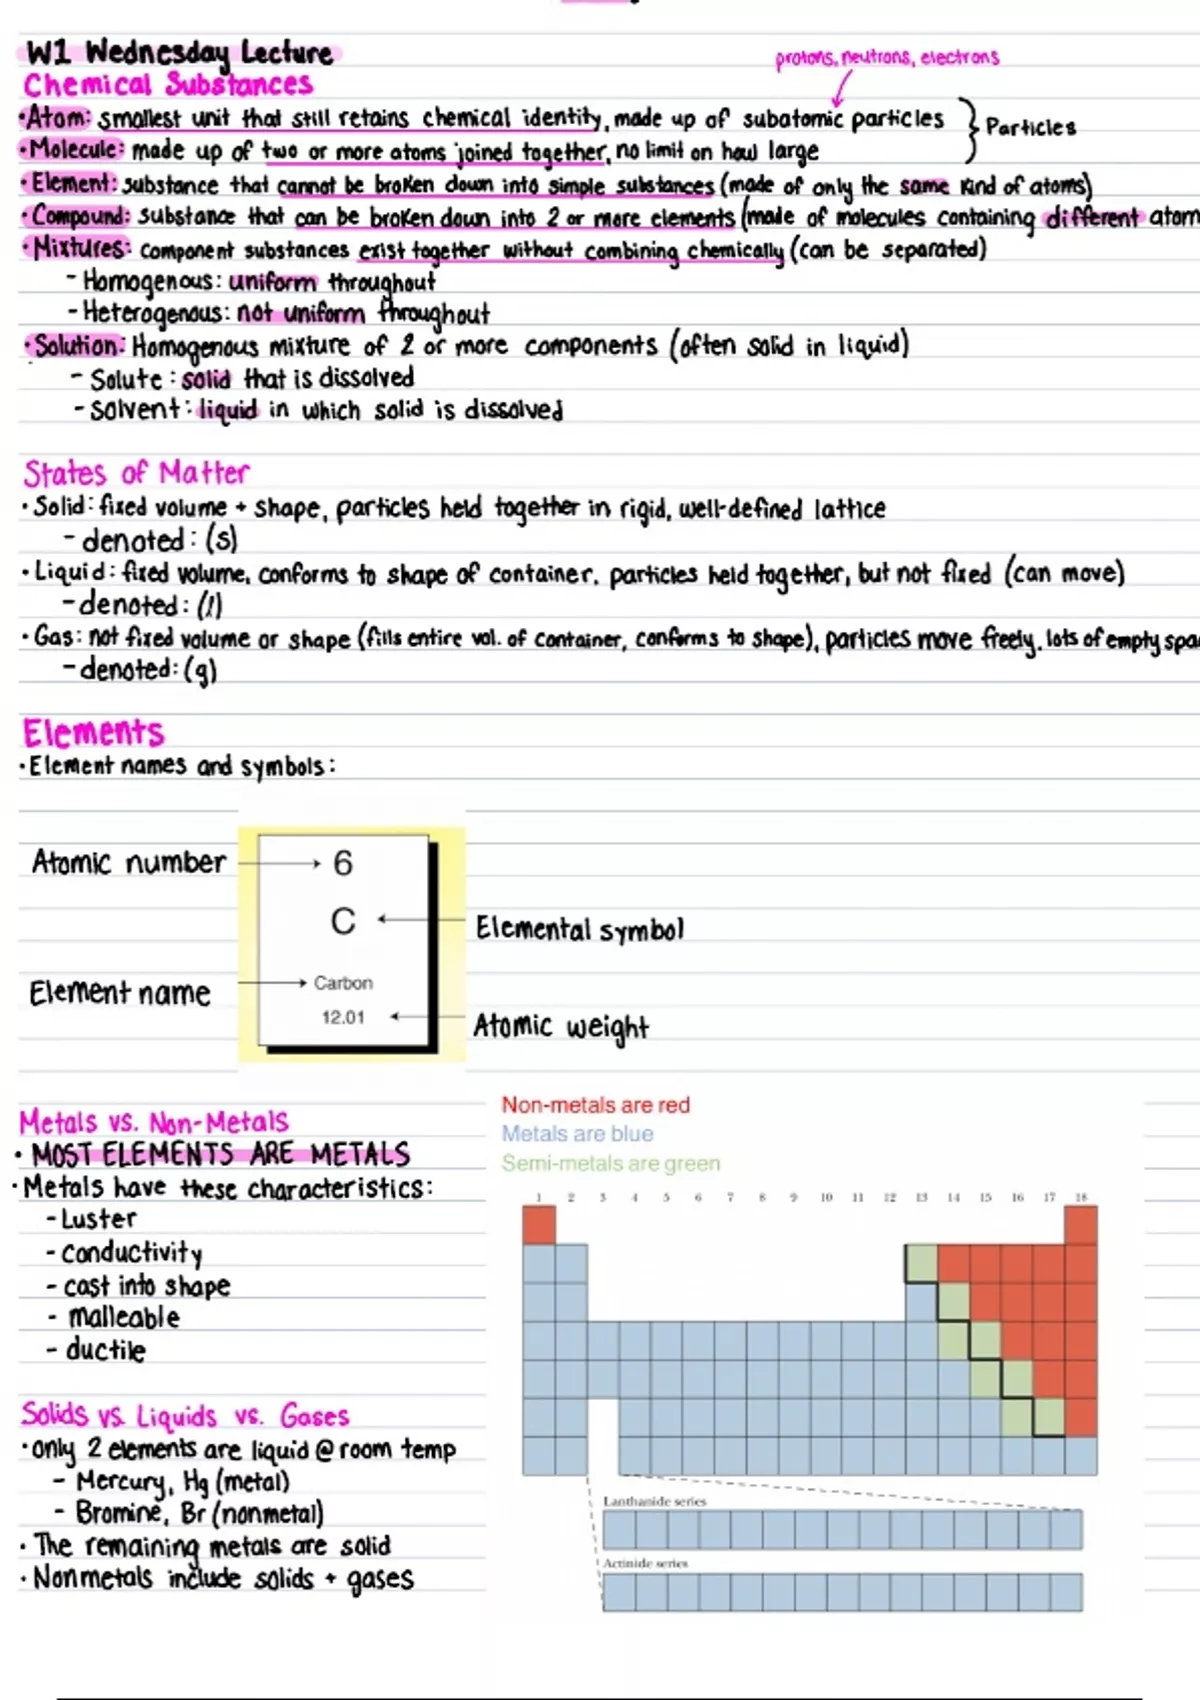 W1 Wednesday Lecture
protons, neutrons, electrons
Chemical Substances
•Atom: smallest unit that still retains chemical identity, made up of subatomic particles
Particles
•Molecule: made up of two or more atoms joined together, no limit on how large
•Element: substance that cannot be broken down into simple substances (made of only the same kind of atoms)
•Compound: substance that can be broken down into 2 or more elements (made of molecules containing different atom
•Mixtures: component substances exist together without combining chemically (can be separated)
- Homogenous: uniform throughout
- Heterogenous: not uniform throughout
•Solution: Homogenous mixture of 2 or more components (often solid in liquid)
- Solute: solid that is dissolved
- solvent: liquid in which solid is dissolved
States of Matter
•Solid: fixed volume + shape, particles held together in rigid, well-defined lattice
- denoted: (s)
•Liquid: fixed volume, conforms to shape of container, particles held together, but not fixed (can move)
- denoted: (l)
•Gas: not fixed volume or shape (fills entire vol. of container, conforms to shape), particles move freely, lots of empty spa
- denoted: (g)
Elements
•Element names and symbols:
Atomic number
6
C
Elemental symbol
Element name
Carbon
12.01
Atomic weight
Metals vs. Non-Metals
• MOST ELEMENTS ARE METALS
•Metals have these characteristics:
- Luster
- conductivity
- cast into shape
- malleable
- ductile
Non-metals are red
Metals are blue
Semi-metals are green
1 2 3 4 5 6 7 8 9 10 11 12 13 14 15 16 17 18
Lanthanide series
Actinide series
Solids vs. Liquids vs. Gases
•only 2 elements are liquid @ room temp
- Mercury, Hg (metal)
- Bromine, Br (nonmetal)
• The remaining metals are solid
•Nonmetals include solids + gases